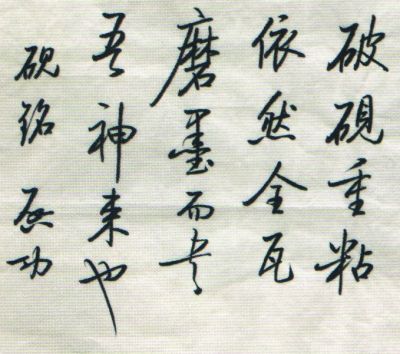 破硯重粘
依然全瓦
磨墨而書
吾神来也
硯銘 启功